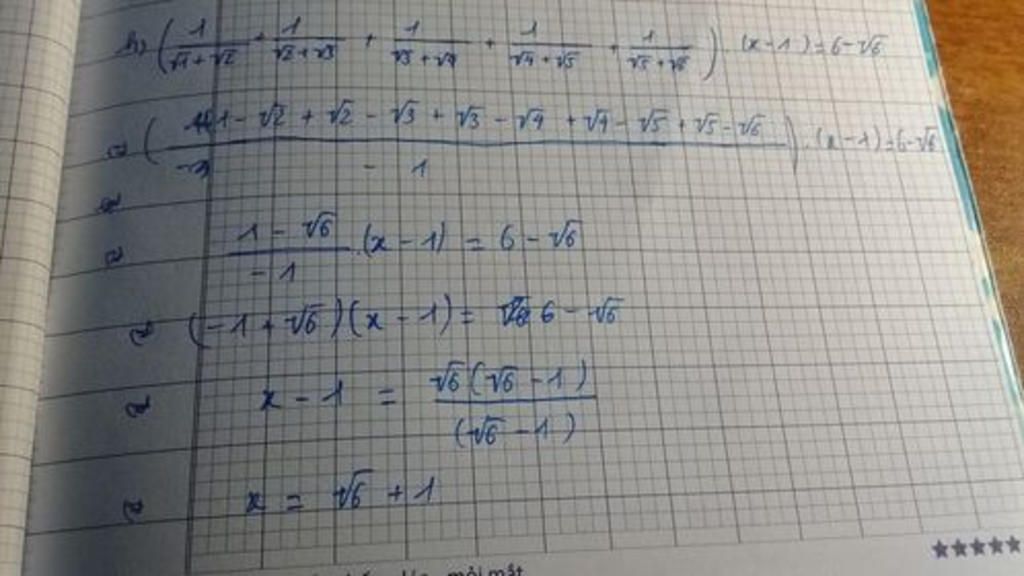 (1/(√1+√2) + 1/(√2+√3) + 1/(√3+√4) + 1/(√4+√5) + 1/(√5+√6)) . (x-1) = 6-√6
((1-√2+√2-√3+√3-√4+√4-√5+√5-√6)/-1) . (x-1) = 6-√6
(1-√6)/-1 . (x-1) = 6-√6
(-1+√6)(x-1) = 6-√6
x-1 = √6(√6-1)/(√6-1)
x = √6+1
mỏi mắt